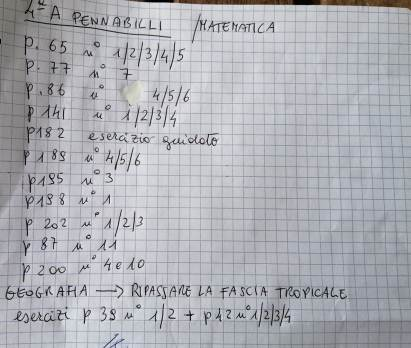 4ª A PENNABILLI /MATEMATICA
p. 65 n° 1/2/3/4/5
p. 77 n° 7
p. 86 n° 4/5/6
p 141 n° 1/2/3/4
p182 esercizio guidato
p 189 n° 4/5/6
p195 n° 3
p198 n° 1
p 202 n° 1/2/3
p 87 n° 11
p 200 n° 4 e 10
GEOGRAFIA → RIPASSARE LA FASCIA TROPICALE
esercizi p 39 n° 1/2 + p 42 n° 1/2/3/4